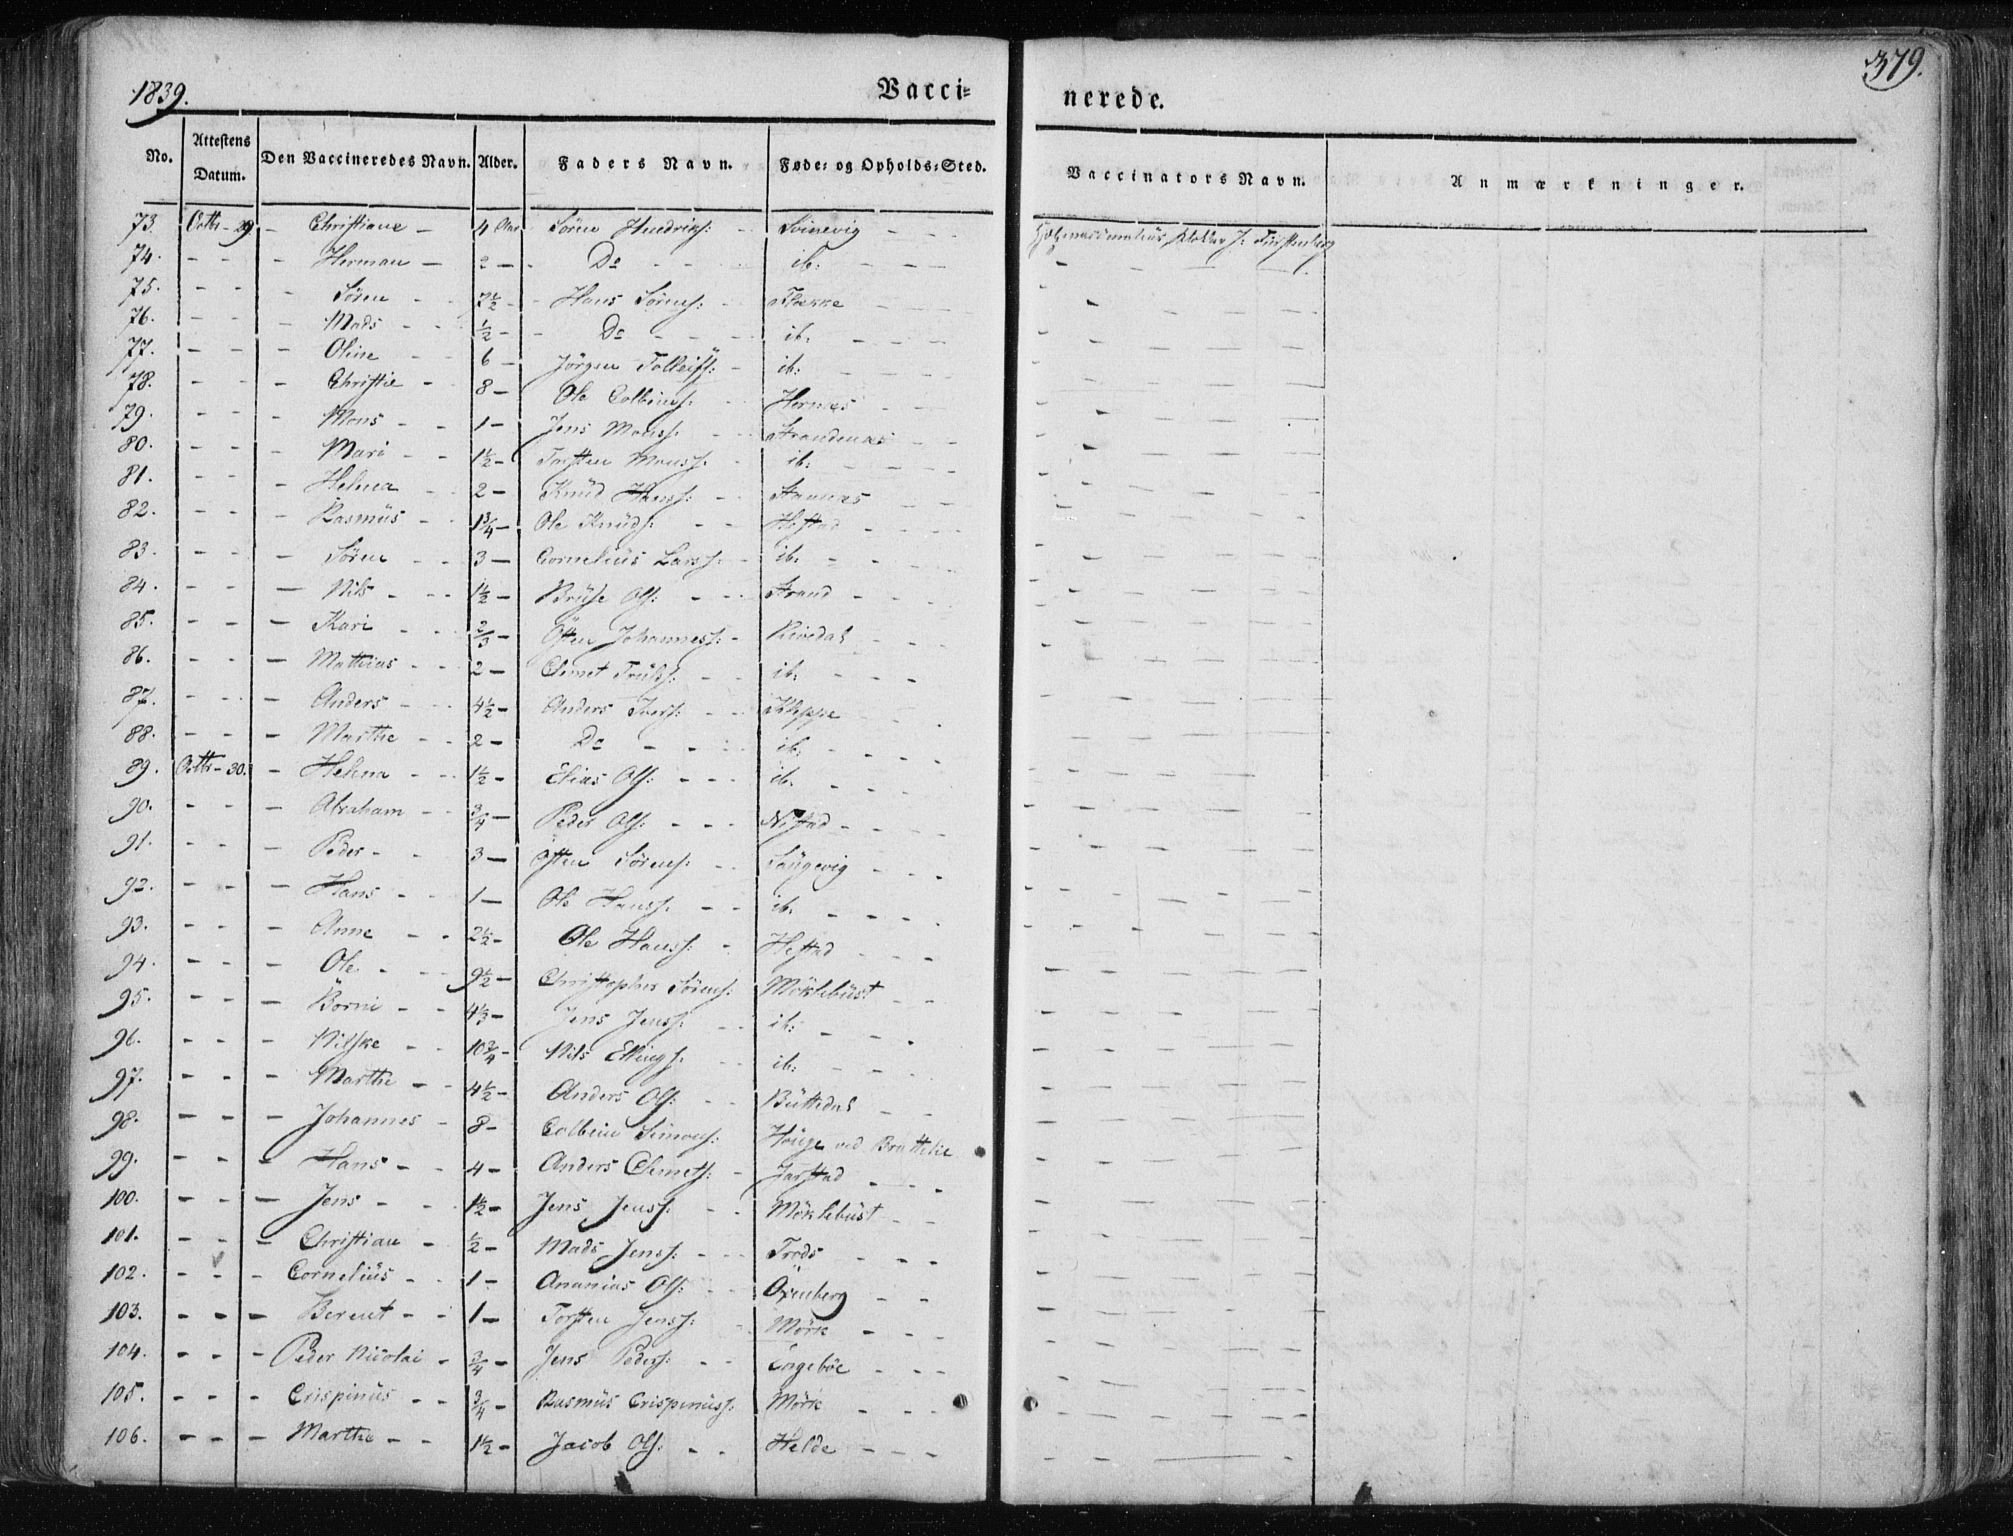 1839.
Vacci=
nerede.
379.
No. Attestens Datum. Den Vaccineredes Navn. Alder. Faders Navn. Føde= og Opholds=Sted. Vaccinators Navn. Anmærkninger.
73. Octbr - 29 - Christiane - 4 Aar Søren Hendriks: - Svinevig - - -
74. - - - Herman - 2 - - Do - - - ib: - - -
75. - - - Søren - - 7½ - Hans Sørens: - Flekke - - -
76. - - - Mads - - ½ - - Do - - - ib: - - -
77. - - - Oline - - 6 - Jörgen Tolleifs: - ib: - - -
78. - - - Christie - 8 - Ole Colbens: - Hernes - - -
79. - - - Mons - - 1 - Jens Monss: - - Strandenas - -
80. - - - Mari - - 1½ - Torsten Monss: - ib: - - -
81. - - - Helena - - 2 - Knüd Hanss: - Stannes - - -
82. - - - Rasmüs - - 1¾ - Ole Knüds: - - Hestad - - -
83. - - - Søren - - 3 - Cornelius Larss: - ib: - - -
84. - - - Nils - - - 1½ - Brüse Ols: - - - Strand - - -
85. - - - Kari - - - 2/3 - Östen Johanness: - Rivedal - - -
86. - - - Mathias - - 2 - Clemet Trüls: - - ib: - - -
87. - - - Anders - - - 4½ - Anders Ivers: - - Kleppe - - -
88. - - - Marthe - - 2 - Do - - - ib: - - -
89. Octbr - 30. - Helena - - 1½ - Elias Ols: - - - ib: - - -
90. - - - Abraham - - ¾ - Peder Ols: - - - Nistad - - -
91. - - - Peder - - 3 - Östen Sørens: - - Laugevig - - -
92. - - - Hans - - - 1 - Ole Hanss: - - ib: - - -
93. - - - Anne - - 2½ - Ole Hanss: - Hestad - - -
94. - - - Ole - - - 9½ - Christopher Sørens: Möklebüst - -
95. - - - Börni - - 4⅓ - Jens Jenss: - - ib: - -
96. - - - Nilske - - 10¾ - Nils Ellings: - - ib: - - -
97. - - - Marthe - - 4½ - Anders Ols: - - Büttedal - -
98. - - - Johannes - 8 - Colbein Simons: Houge ved Brattelie
99. - - - Hans - - 4 - Anders Clemets: - Jarstad - - -
100. - - - Jens - - - 1½ - Jens Jenss: - - Möklebüst - -
101. - - - Christian - ½ - Mads Jenss: - - - Trods - - -
102. - - - Cornelius - - 1 - Ananias Ols: - - Öxenberg - -
103. - - - Berent - - 1 - Torsten Jenss: - - Mörk - - -
104. - - - Peder Nicolai - ¾ - Jens Peders: - - Engebøe - - -
105. - - - Crispinüs - - ¾ - Rasmüs Crispinüss: - Mörk - - -
106. - - - Marthe - - 1½ - Jacob Ols: - - Helde - - -